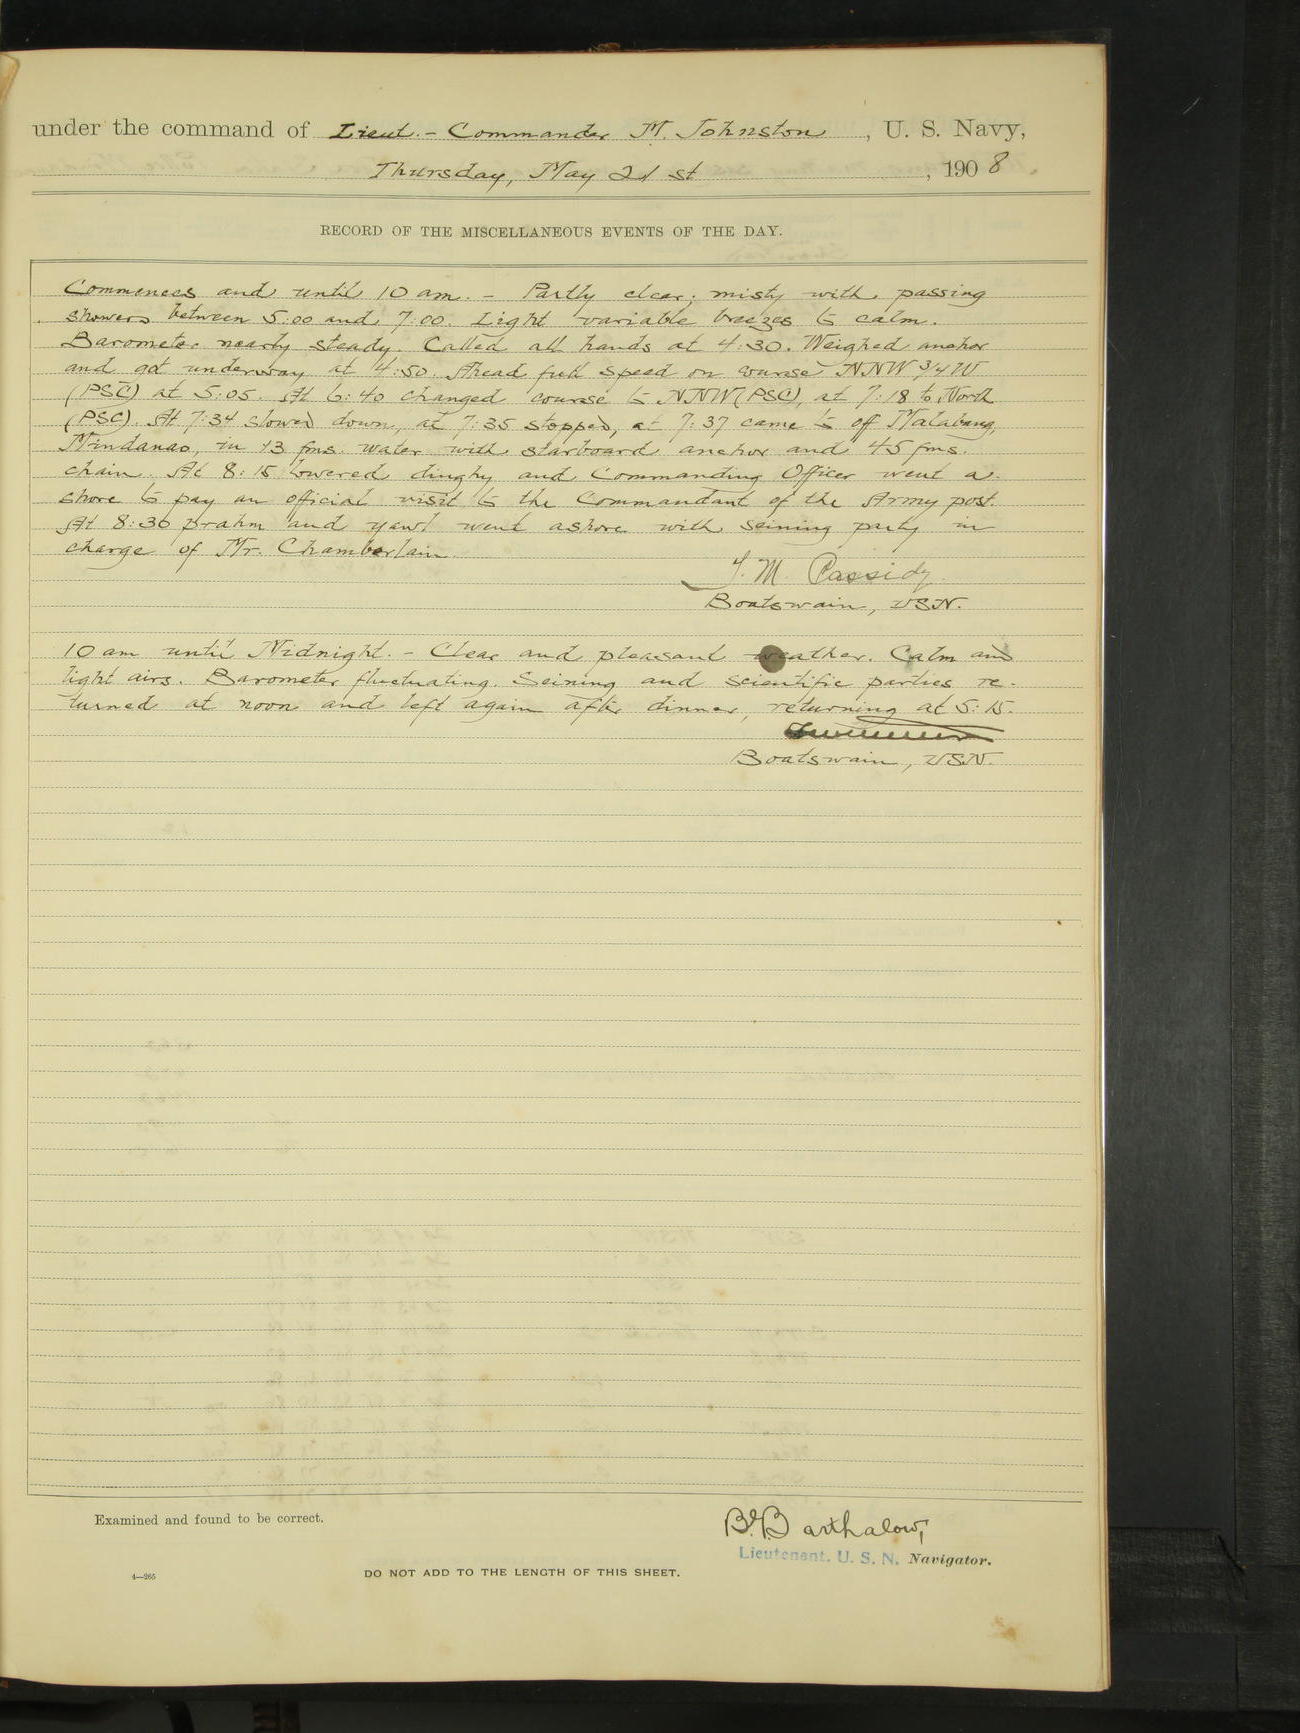 under the command of Lieut.- Commander M. Johnston , U. S. Navy,
Thursday, May 21st , 1908.
RECORD OF THE MISCELLANEOUS EVENTS OF THE DAY.
Commences and until 10 am. - Partly clear; misty with passing
showers between 5:00 and 7:00. Light variable breezes to calm.
Barometer nearly steady. Called all hands at 4:30. Weighed anchor
and got underway at 4:50. Ahead full speed on course NNW 3/4 W
(PSC) at 5:05. At 6:40 changed course to NNW (PSC), at 7:18 to North
(PSC). At 7:34 slowed down, at 7:35 stopped, at 7:37 came to off Malabang,
Mindanao, in 13 fms. water with starboard anchor and 45 fms.
chain. At 8:15 lowered dinghy and Commanding Officer went a-
shore to pay an official visit to the Commandant of the Army post.
At 8:30 prahm and yawl went ashore with seining party in
charge of Mr. Chamberlain.
J. M. Cassidy
Boatswain, USN.
10 am until Midnight. - Clear and pleasant weather. Calm and
light airs. Barometer fluctuating. Seining and scientific parties re-
turned at noon and left again after dinner, returning at 5:15.
Boatswain, USN.
Examined and found to be correct.
B. B. arthalow,
Lieutenant. U. S. N. Navigator.
4—265
DO NOT ADD TO THE LENGTH OF THIS SHEET.